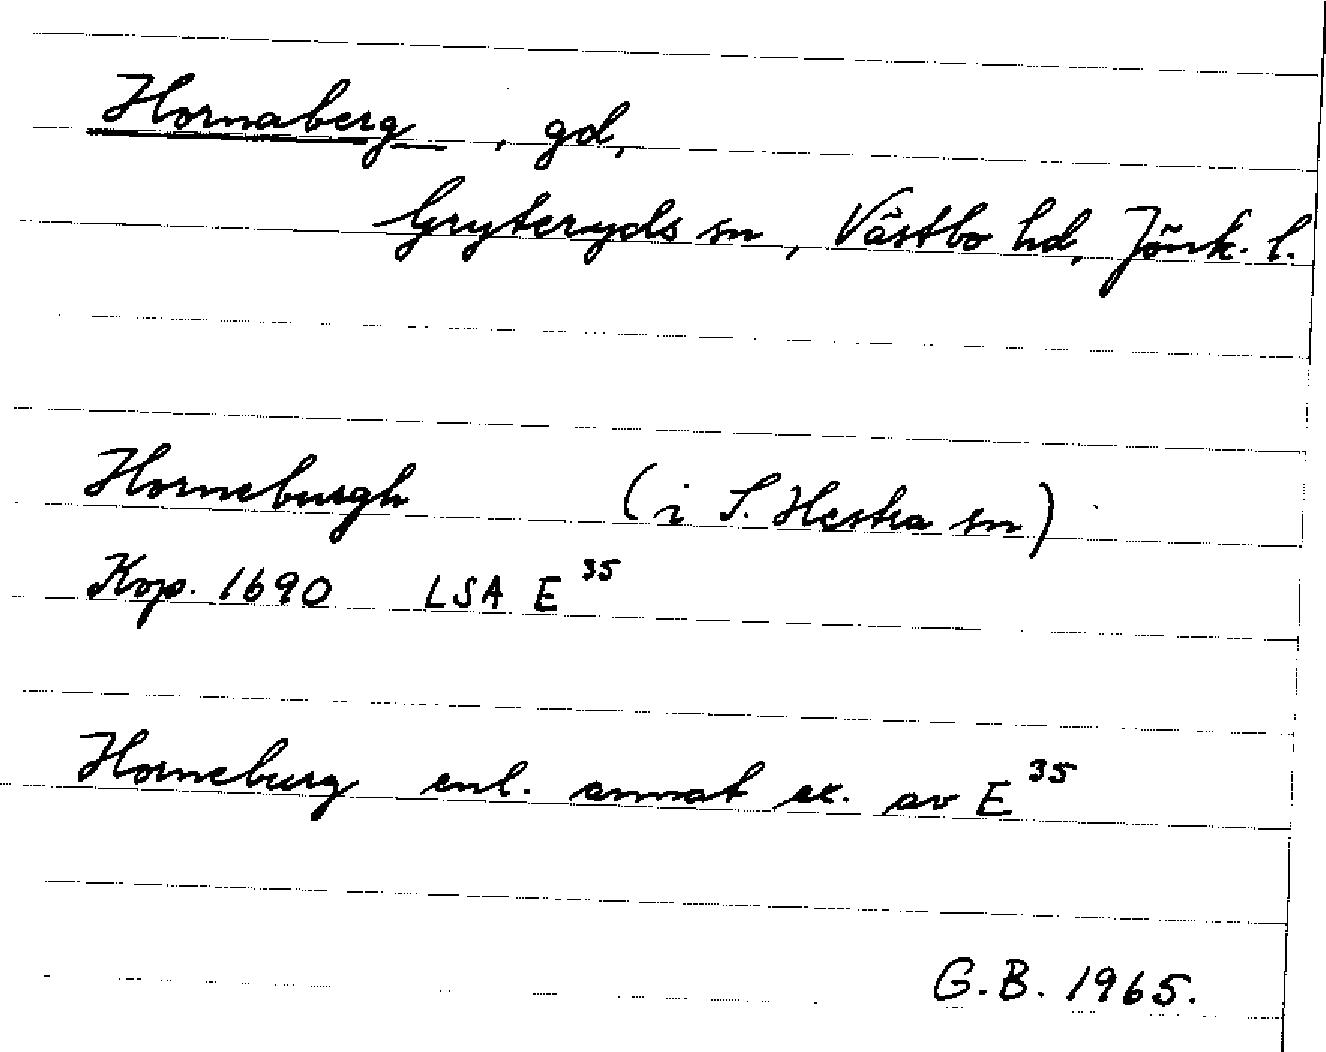 Hornaberg , gd,
Gryteryds sn, Västbo hd, Jönk. l.
Horneburgh (i S. Hestra sn)
Kop. 1690 LSA E 35
Horneburg enl. annat ex. av E 35
G.B. 1965.